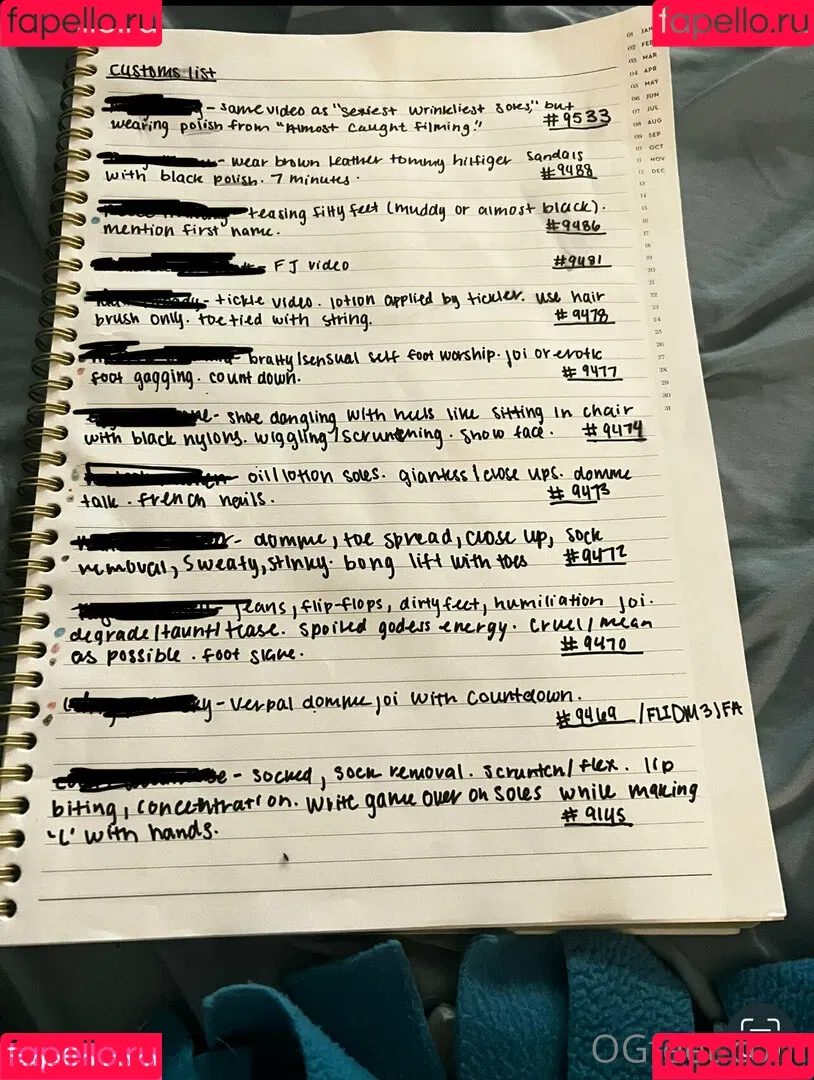 fapello.ru
fapello.ru
01 JAN
02 FEB
03 MAR
04 APR
05 MAY
06 JUN
07 JUL
08 AUG
09 SEP
10 OCT
11 NOV
12 DEC
13
14
15
16
17
18
19
20
21
22
23
24
25
26
27
28
29
30
31
customs list
- same video as "sexiest wrinkliest soles," but
wearing polish from "Almost caught filming." #9533
- wear brown leather tommy hilfiger sandals
with black polish. 7 minutes. #9488
- teasing filty feet (muddy or almost black).
mention first name. #9486
- FJ video #9481
- tickle video. lotion applied by tickler. use hair
brush only. toe tied with string. #9478
- bratty/sensual self foot worship. joi or erotic
foot gagging. count down. #9477
- shoe dangling with heels like sitting in chair
with black nylons. wiggling/scrunching. show face. #9474
- oil/lotion soles. giantess/close ups. domme
talk. french nails. #9473
- domme, toe spread, close up, sock
removal, sweaty, stinky. bong lift with toes #9472
jeans, flip-flops, dirty feet, humiliation joi.
degrade/taunt/tease. spoiled godess energy. cruel/mean
as possible. foot slave. #9470
- verpal domme joi with countdown.
#9469 /FLIDM3)FA
- socked, sock removal. scrunch/flex. lip
biting, concentration. write game over on soles while making
'L' with hands. #9145
fapello.ru
OG
fapello.ru